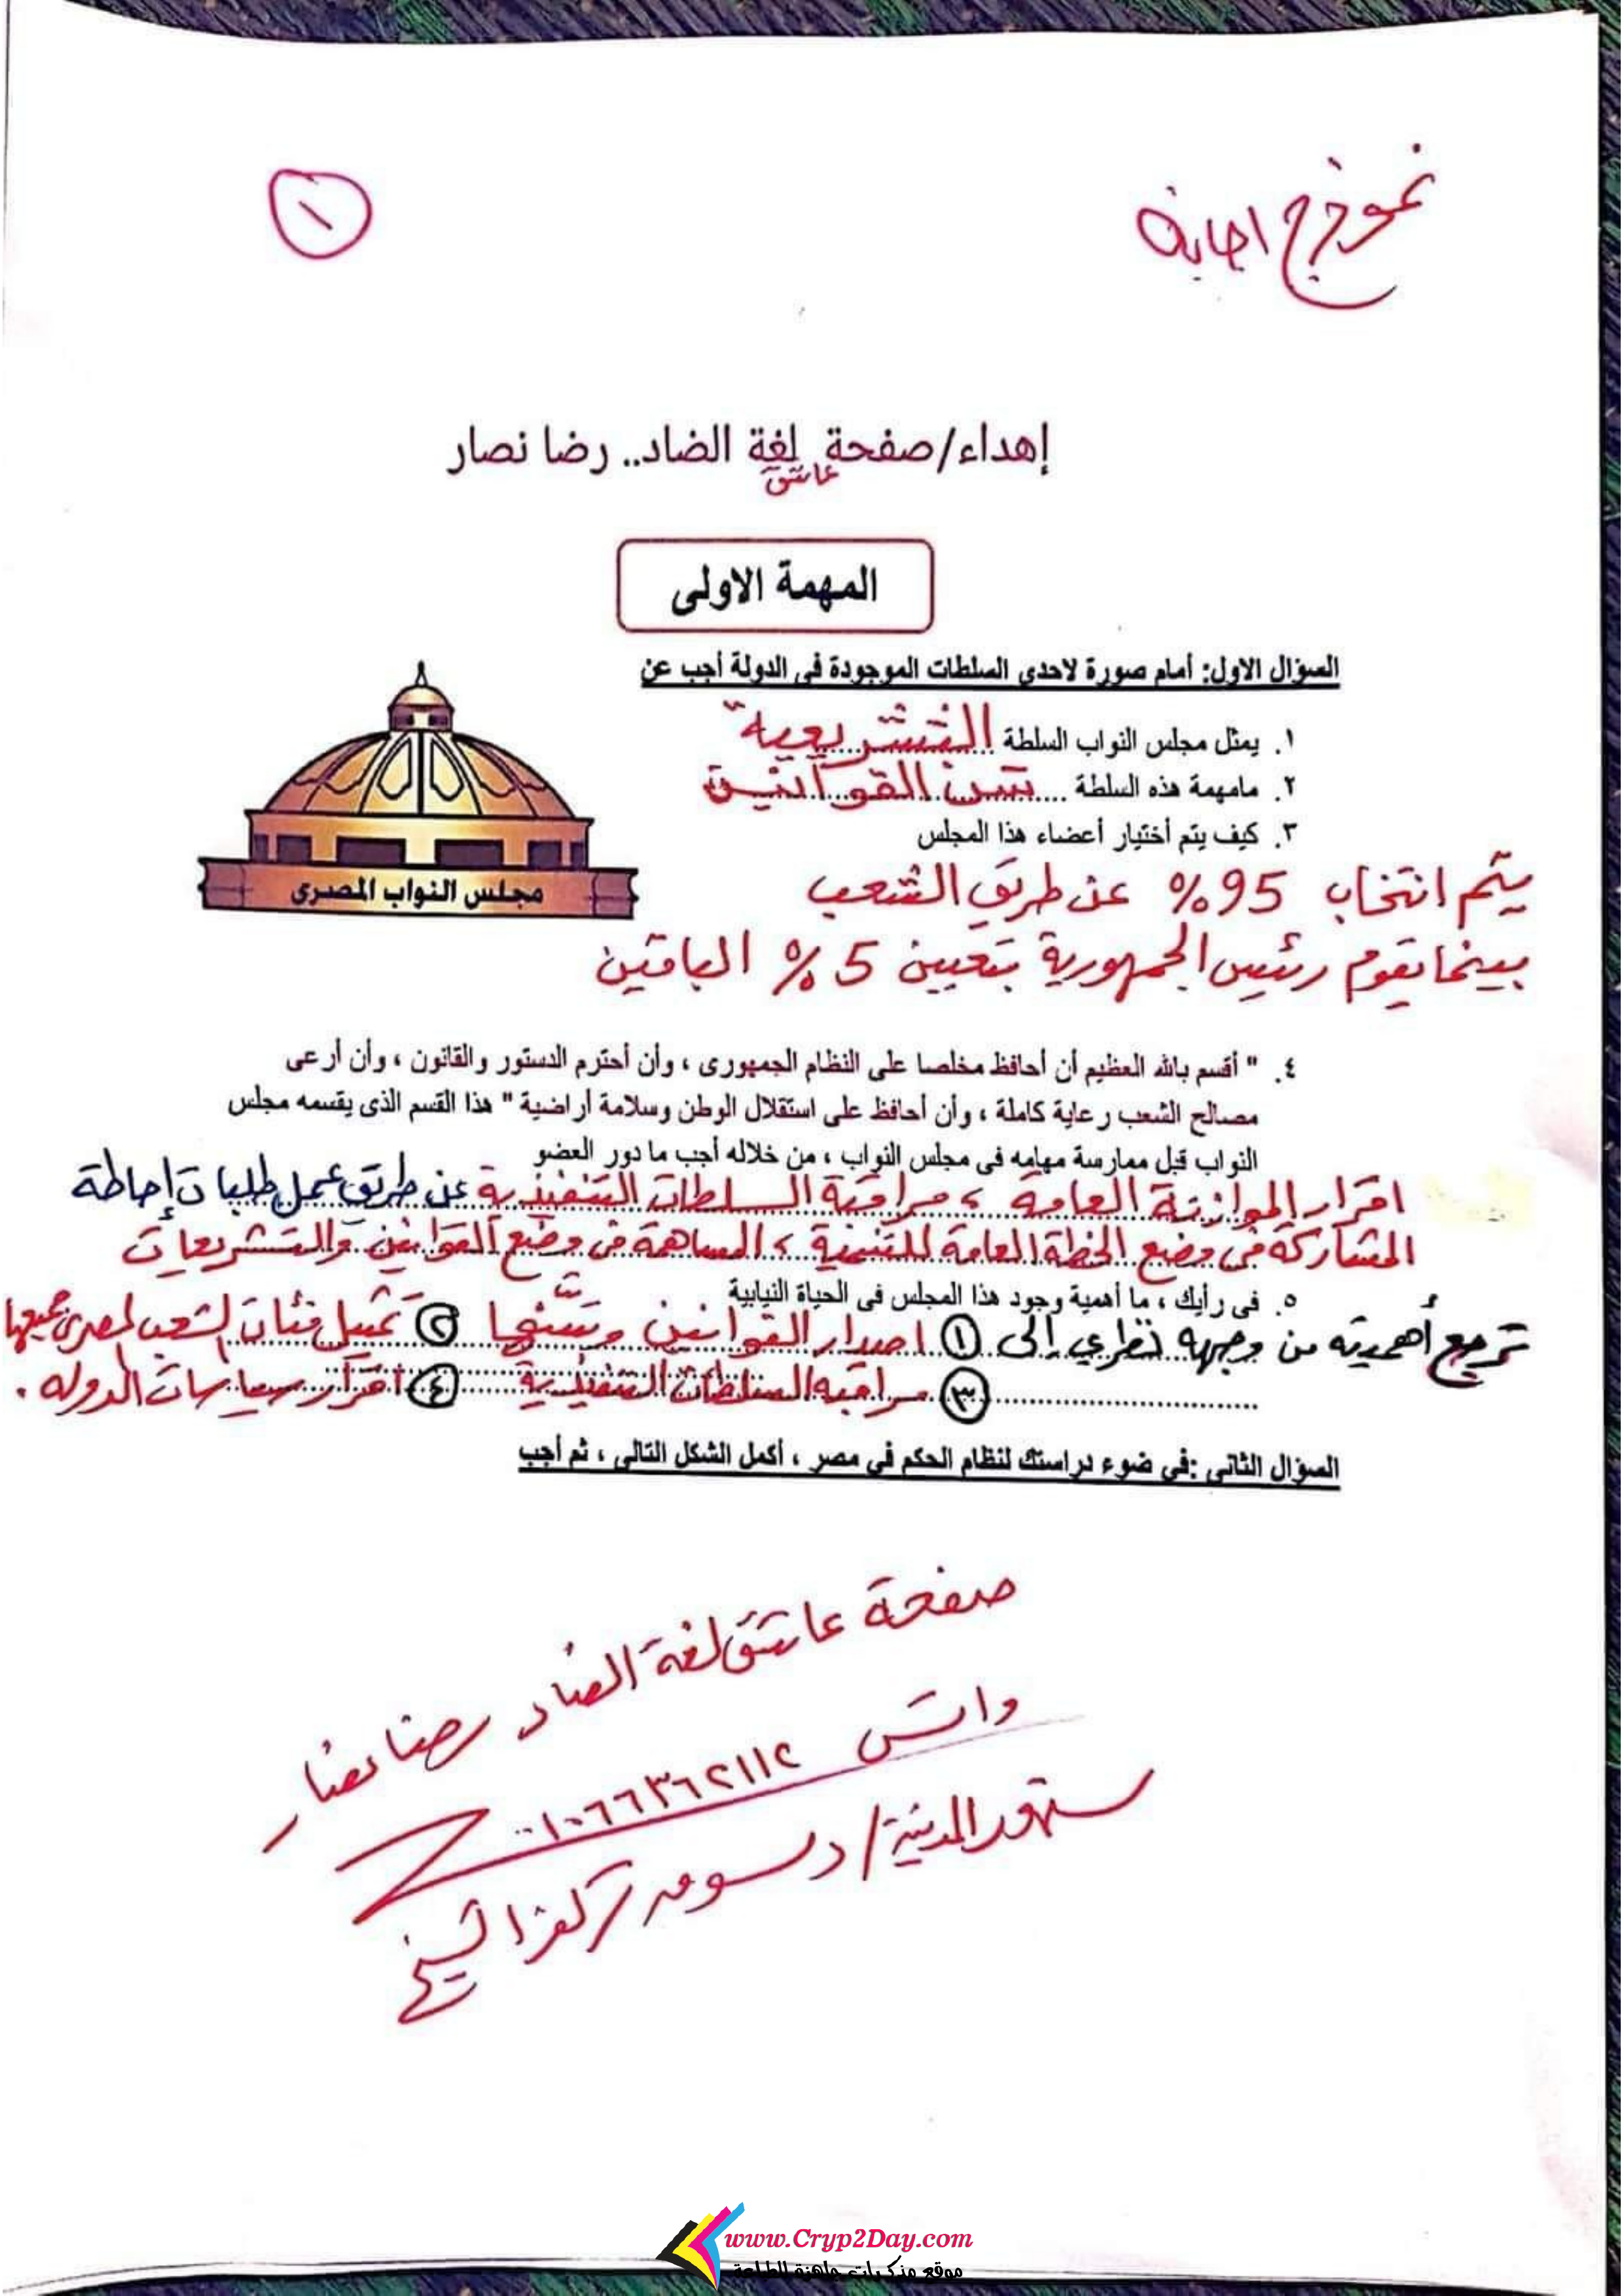 نموذج اجابة
١
إهداء/صفحة لغة الضاد.. رضا نصار
عاشق
المهمة الاولى
السؤال الاول: أمام صورة لاحدى السلطات الموجودة فى الدولة أجب عن
١. يمثل مجلس النواب السلطة التشريعية
٢. مامهمة هذه السلطة سن القوانين
٣. كيف يتم أختيار أعضاء هذا المجلس
مجلس النواب المصرى
يتم انتخاب 95% عن طريق الشعب
بينما يقوم رئيس الجمهورية بتعيين 5% الباقين
٤. " أقسم بالله العظيم أن أحافظ مخلصا على النظام الجمهورى ، وأن أحترم الدستور والقانون ، وأن أرعى
مصالح الشعب رعاية كاملة ، وأن أحافظ على استقلال الوطن وسلامة أراضية " هذا القسم الذى يقسمه مجلس
النواب قبل ممارسة مهامه فى مجلس النواب ، من خلاله أجب ما دور العضو
اقرار الموازنة العامة ، مراقبة السلطات التنفيذية عن طريق عمل طلبات إحاطة
المشاركة في وضع الخطة العامة للتنمية ، المساهمة في وضع القوانين والتشريعات
٥. فى رأيك ، ما أهمية وجود هذا المجلس فى الحياة النيابية
ترجع أهميته من وجهة نظري إلى ١ اصدار القوانين وسنها ٢ تمثيل فئات الشعب المصري جميعها
٣ مراقبه السلطات التنفيذية ٤ اقرار سياسات الدوله .
السؤال الثانى :فى ضوء دراستك لنظام الحكم فى مصر ، أكمل الشكل التالى ، ثم أجب
صفحة عاشق لغة الضاد رضا نصار
واتس ٠١٠٦٦٣٦٢١١٢
سنهور المدينة/ دسوق كفر الشيخ
www.Cryp2Day.com
موقع مذكرات جاهزة للطباعة